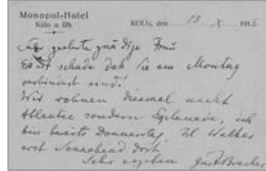 Monopol-Hotel
Köln a. Rh.
KÖLN, den 13. X. 191
Sehr geehrte gnädige Frau
Es ist schade daß Sie am Montag
verhindert sind!
Wir wohnen diesmal nicht
Atlantic sondern Esplanade, ich
bin bereits Donnerstag,
erst Sonnabend dort.
Sehr ergeben